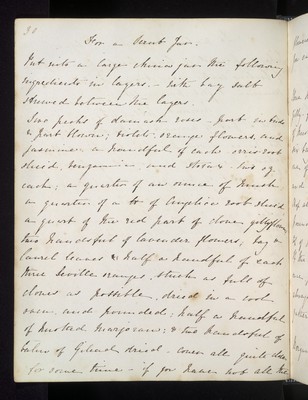 30
For a Scent Jar.
Put into a large china jar the following
ingredients in layers. - with bay salt
strewed between the layers.
Two pecks of damask roses - part in buds
& part blown; violets, orange flowers, and
jasmine a handful of each orris root
sliced, benjamin and storax - two oz
each; a quarter of an ounce of musk
a quarter of a lb of Angelica root sliced
a quart of the red part of clove gillyflowers
two handfuls of lavender flowers; bay &
laurel leaves & half a handful of each
three Seville oranges, stuck as full of
cloves as possible, dried in a cool
oven, and pounded; half a handful
of knotted Margoram; & two handfuls of
balm of Gilead dried - cover all quite close
for some time - if you have not all the